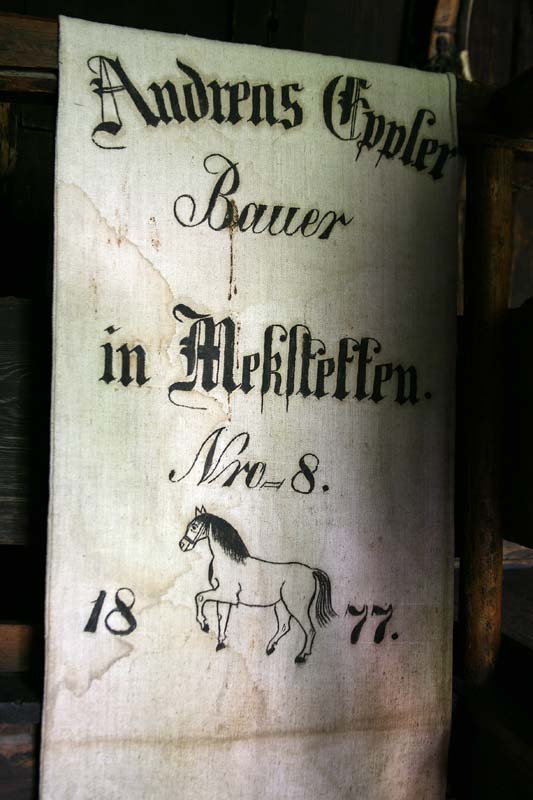 Andreas Eppler
Bauer
in Mekstetten.
Nro= 8.
18 77.